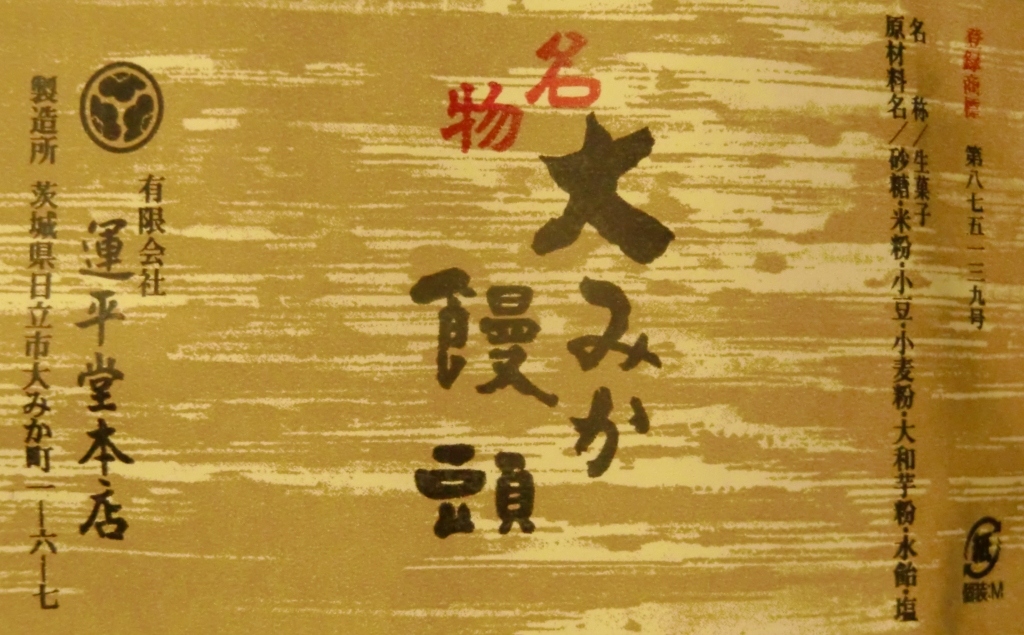 登録商標 第八七五一一三九号
名 称/生菓子
原材料名/砂糖・米粉・小豆・小麦粉・大和芋粉・水飴・塩
紙
個装:M
名物
大みか
饅頭
有限会社
運平堂本店
製造所 茨城県日立市大みか町一ー六ー七